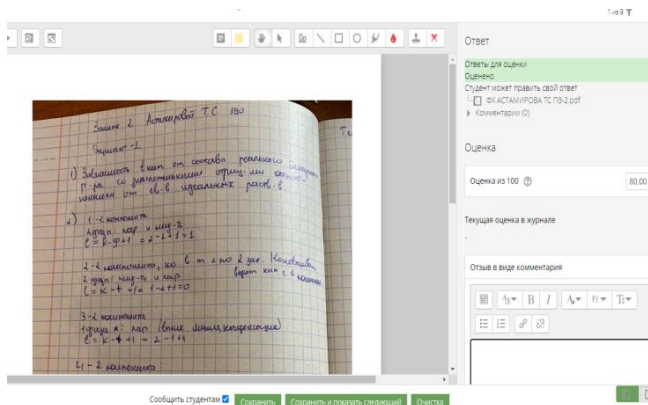 1 из 9
Ответ
Ответы для оценки
Оценено
Студент может править свой ответ
ФК АСТАМИРОВА ТС ПЗ-2.pdf
Комментарии (0)
Оценка
Оценка из 100
80,00
Текущая оценка в журнале
-
Отзыв в виде комментария
2 Астамировой ТС 390
Вариант-2
1) Зависимость t кип от состава реального
р-ра со значительными отриц-ми
от св-в идеальных раств-в
2) 1-2 компонента
2 фазы пар и жид-ть
C = k-ф+1 = 2-2+1=1
2-2 компонента, но в т. 2 по 2 зак. Коновалова
2 фазы: жид-ть и пар
ведет как с 1
C = K-ф+1 = 1-2+1=0
3-2 компонента
1 фаза: пар (выше линии конденсации)
C = K-ф+1 = 2-1+1
4-2 компонента
Сообщить студентам
Сохранить
Сохранить и показать следующий
Очистка